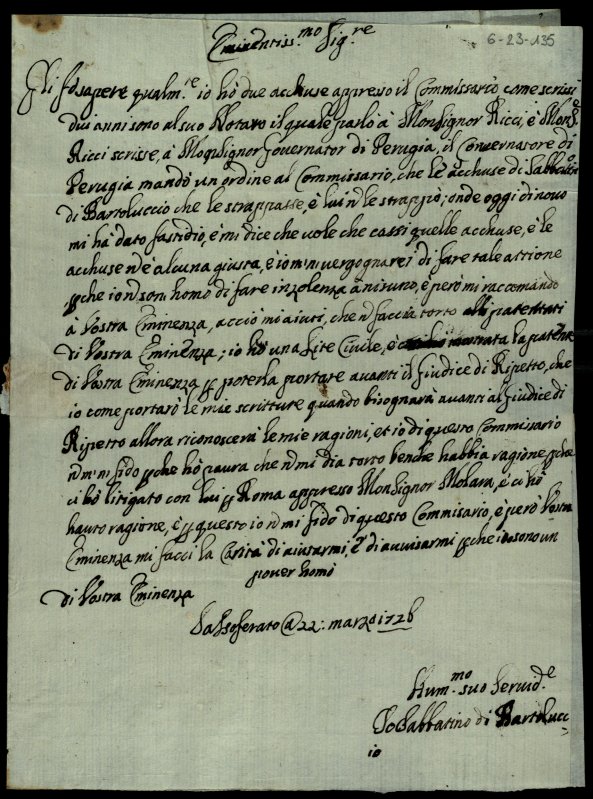 6-23-135
Eminentiss.mo Sig.re
Gli fò sapere qualm.te io hò due acchuse appresso il Commissario come scrissi
dui anni sono al suo Notaro il quale parlò à MonSignor Ricci, è Mons.r
Ricci scrisse, à MonSignor Governator di Perugia, il Governatore di
Perugia mandò un ordine al Commissario, che le acchuse di Sabbatino
di Bartoluccio che le strappasse, è lui n le strappiò; onde oggi di novo
mi hà dato fastidio, è mi dice che vole che cassi quelle acchuse, è le
acchuse n è alcuna giusta, è io m'n vergognarei di fare tale attione
p che io n son homo di fare inzolenza à nisuno, è però mi raccomando
à Vostra Eminenza, acciò mi aiuti, che n faccia torto alli patentati
di Vostra Eminenza; io hò una Lite Civile, è la patente
di Vostra Eminenza p poterla portare avanti il Giudice di Ripetto, che
io come portarò le mie scritture quando bisognarà avanti al Giudice di
Ripetto allora riconoscerà le mie ragioni, et io di questo Commisario
n m'n fido p che hò paura che n mi dia torto benche habbia ragione p che
ci hò litigato con lui p Roma appresso MonSignor Molara, è ci hò
hauto ragione, è p questo io n mi fido di questo Commisario, è però Vostra
Eminenza mi facci la Carità di aiutarmi, è di avvisarmi p che io sono un
pover homo
di Vostra Eminenza
Sassoferato @ 22: marzo 1726
Hum.mo suo Servid.e
Io Sabbatino di Bartolucc-
io